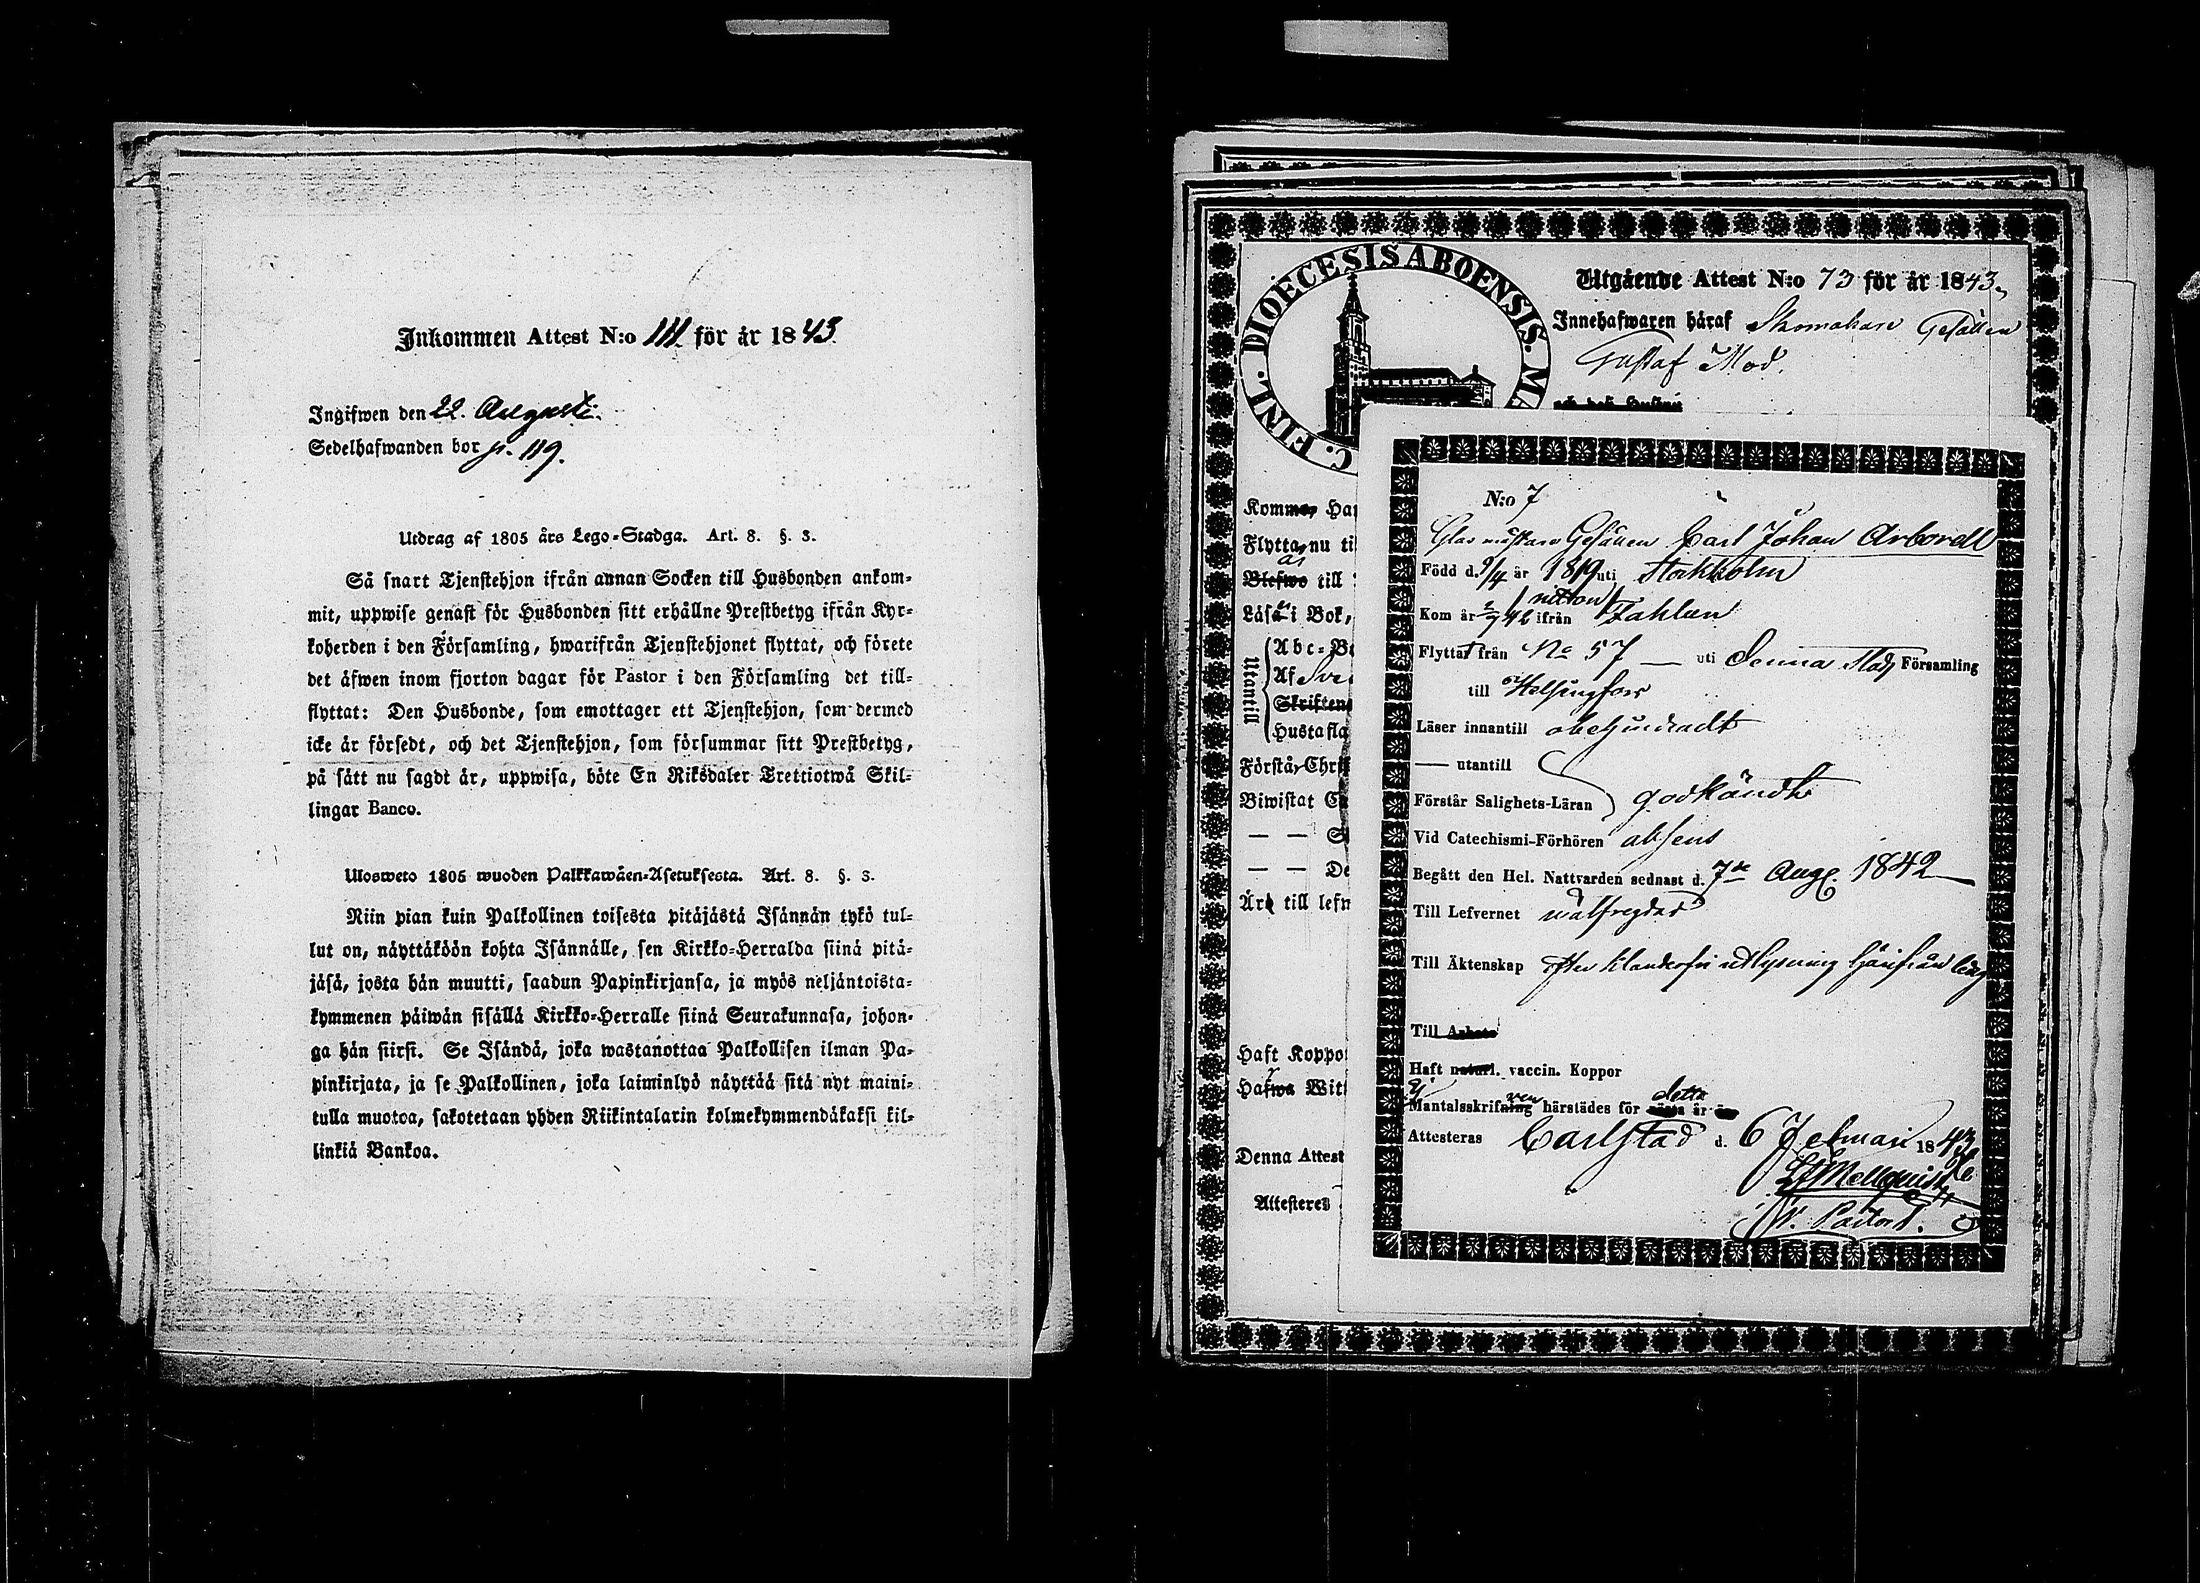 Inkommen Attest N:o 111. för år 1843.
Ingifwen den 22. Augusti.
Sedelhafwanden bor p. 119.
Utdrag af 1805 års Lego-Stadga. Art. 8. §. 3.
Så snart Tjenstehjon ifrån annan Socken till Husbonden ankom-
mit, uppwise genast för Husbonden sitt erhållne Prestbetyg ifrån Kyr-
koherden i den Församling, hwarifrån Tjenstehjonet flyttat, och förete
det äfwen inom fjorton dagar för Pastor i den Församling det till-
flyttat: Den Husbonde, som emottager ett Tjenstehjon, som dermed
icke är försedt, och det Tjenstehjon, som försummar sitt Prestbetyg,
på sätt nu sagdt är, uppwisa, böte En Riksdaler Trettiotwå Skil-
lingar Banco.
Ulosweto 1805 wuoden Palkkawäen-Asetuksesta. Art. 8. §. 3.
Niin pian kuin Palkollinen toisesta pitäjästä Isännän tykö tul-
lut on, näyttäköön kohta Isännälle, sen Kirkko-Herralda siinä pitä-
jäsä, josta hän muutti, saadun Papinkirjansa, ja myös neljäntoista-
kymmenen päiwän sisällä Kirkko-Herralle siinä Seurakunnasa, johon-
ga hän siirsi. Se Isändä, joka wastanottaa Palkollisen ilman Pa-
pinkirjata, ja se Palkollinen, joka laiminlyö näyttää sitä nyt maini-
tulla muotoa, sakotetaan yhden Riikintalarin kolmekymmendäkaksi kil-
linkiä Bankoa.
C. FINL. DIOECESIS ABOENSIS. MA
Utgående Attest N:o 73 för år 1843,
Innehafwaren häraf Skomakare Gesällen
Gustaf Mod.
och dess Hustru
Kommer Har
Flytta, nu ti
Blefwo till
Läsa i Bok,
Utantill
Abc-Bo
Af Sve
Skriftens
Hustafla
Förstå, Chri
Biwistat C
— — S
— — De
Äro till lefn
Haft Koppo
Hafwa Wit
Denna Attest
Attesteres
N:o 7
Glasmästare Gesällen Carl Johan Arborell
Född d. 9/4 år 1819 uti Stockholm
nitton
Kom år 42 ifrån Fahlun
Flyttat från No 57 — uti Denna Stads Församling
till Helsingfors
Läser innantill obehindradt
— utantill
Förstår Salighets-Läran godkändt
Vid Catechismi-Förhören absens
Begått den Hel. Nattvarden sednast d. 7de Aug. 1842
Till Lefvernet välfrejdad
Till Äktenskap efter klanderfri utlysning härifrån ledig
Till Arbete
Haft naturl. vaccin. Koppor
Ej detta
Mantalsskrifven härstädes för nästa år
Attesteras Carlstad d. 6 Februari 1843
Mellquist
V. Pastor